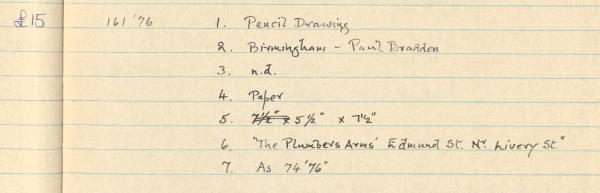 £15 161'76 1. Pencil Drawing
2. Birmingham - Paul Braddon
3. n.d.
4. Paper
5. 7½" x 5½" x 7½"
6. "The Plumbers Arms' Edmund St. Nr. Livery St."
7. As 74'76"